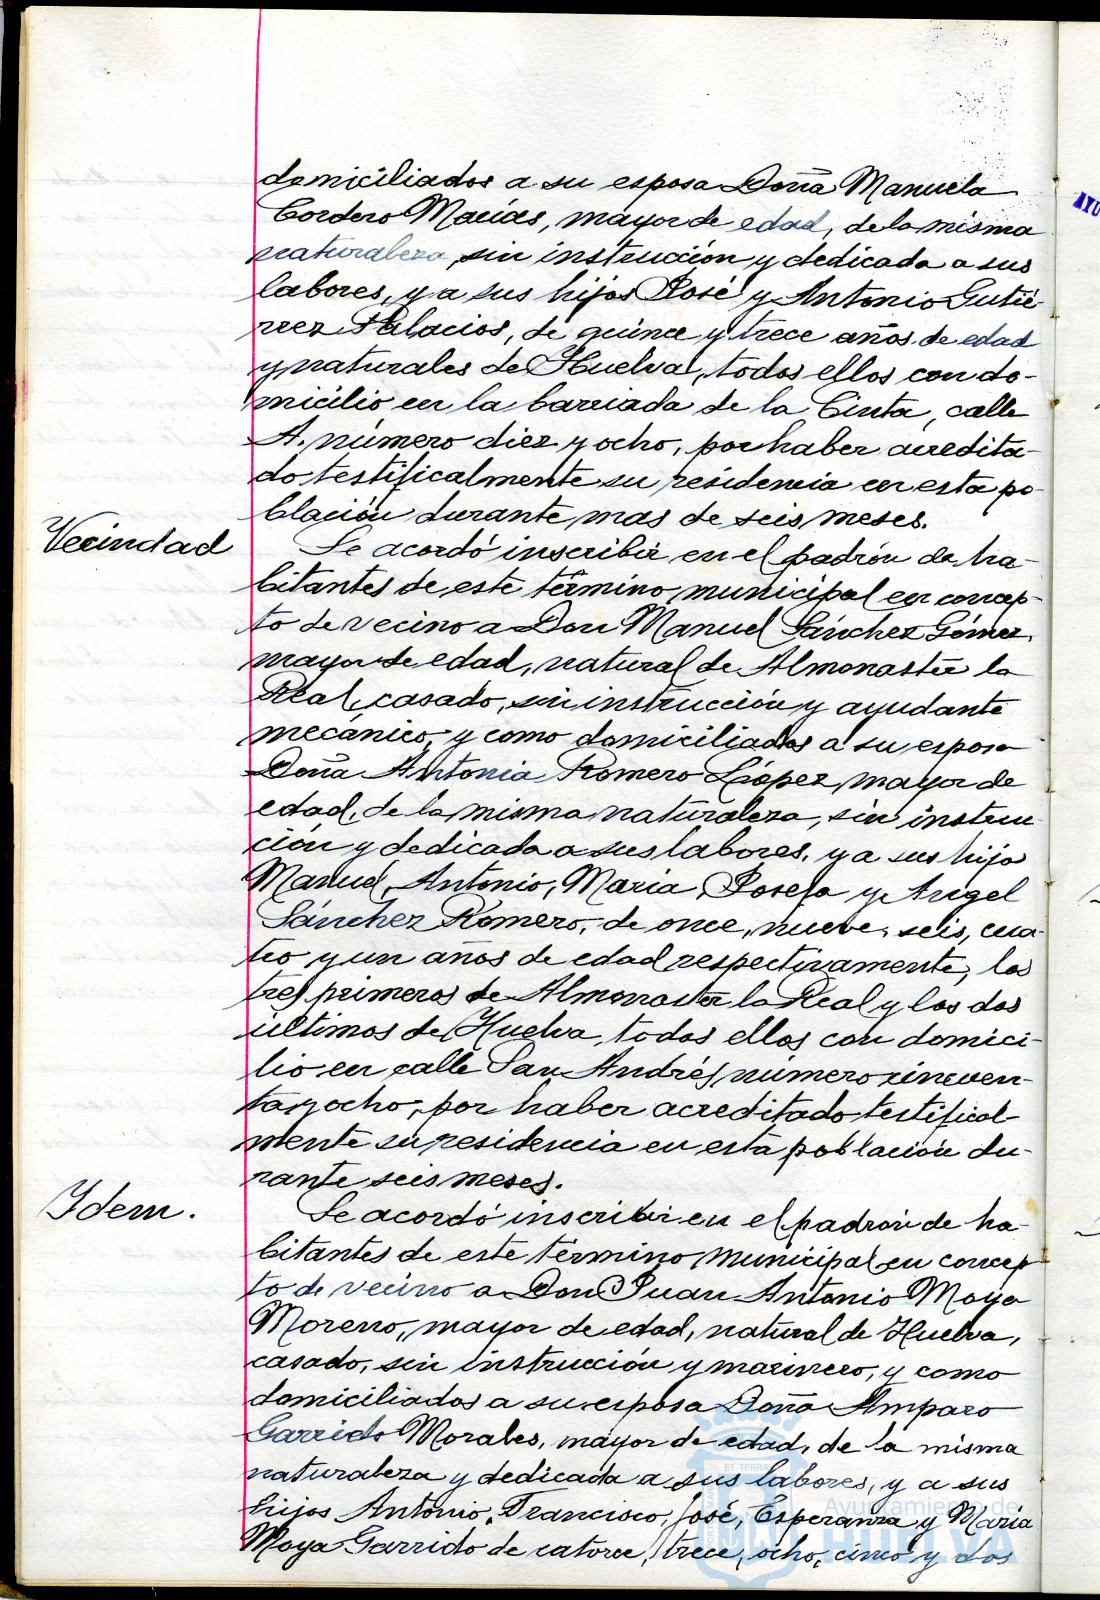 domiciliados a su esposa Doña Manuela
Cordero Macías, mayor de edad, de la misma
naturaleza, sin instrucción y dedicada a sus
labores, y a sus hijos José y Antonio Gutié-
rrez Palacios, de quince y trece años de edad
y naturales de Huelva, todos ellos con do-
micilio en la barriada de la Cinta, calle
A. número diez y ocho, por haber acredita-
do testificalmente su residencia en esta po-
blación durante mas de seis meses.
Vecindad
Se acordó inscribir en el padrón de ha-
bitantes de este término municipal en concep-
to de vecino a Don Manuel Sánchez Gómez,
mayor de edad, natural de Almonaster la
Real, casado, sin instrucción y ayudante
mecánico, y como domiciliados a su esposa
Doña Antonia Romero López, mayor de
edad, de la misma naturaleza, sin instruc-
ción y dedicada a sus labores, y a sus hijos
Manuel, Antonio, María, Josefa y Angel
Sánchez Romero, de once, nueve, seis, cua-
tro y un años de edad respectivamente, los
tres primeros de Almonaster la Real y los dos
últimos de Huelva, todos ellos con domici-
lio en calle San Andrés, número cincuen-
ta y ocho, por haber acreditado testifical-
mente su residencia en esta población du-
rante seis meses.
Idem.
Se acordó inscribir en el padrón de ha-
bitantes de este término municipal en concep-
to de vecino a Don Juan Antonio Moya
Moreno, mayor de edad, natural de Huelva,
casado, sin instrucción y marinero, y como
domiciliados a su esposa Doña Amparo
Garrido Morales, mayor de edad, de la misma
naturaleza y dedicada a sus labores, y a sus
hijos Antonio, Francisco, José, Esperanza y María
Moya Garrido de catorce, trece, ocho, cinco y dos
Ayuntamiento de
HUELVA